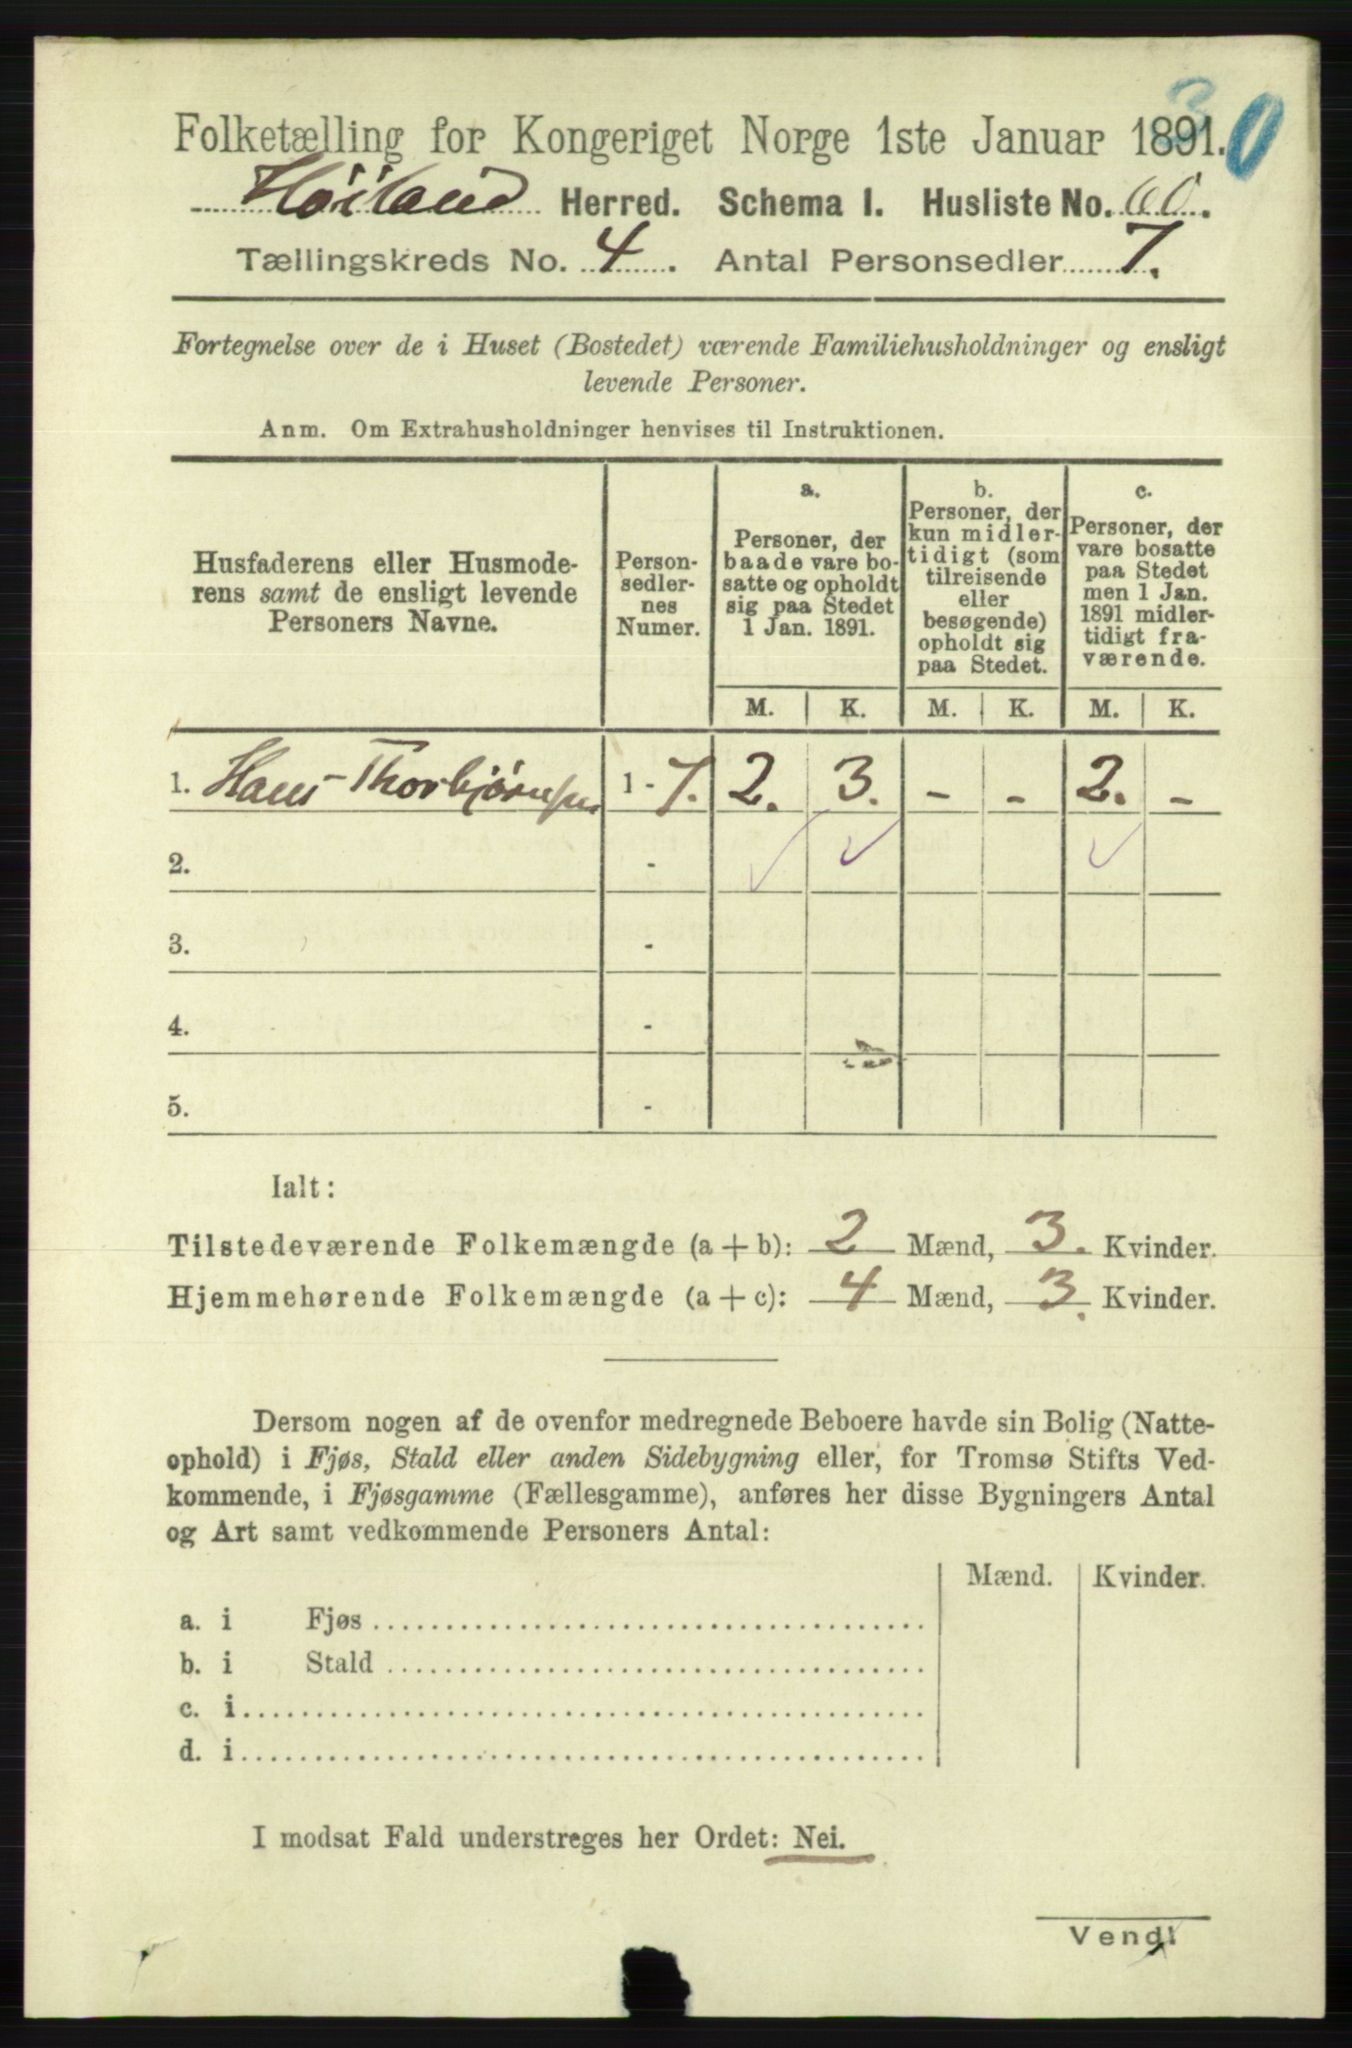 30
Folketælling for Kongeriget Norge 1ste Januar 1891.
Høiland Herred. Schema I. Husliste No. 60.
Tællingskreds No. 4. Antal Personsedler 7.
Fortegnelse over de i Huset (Bostedet) værende Familiehusholdninger og ensligt
levende Personer.
Anm. Om Extrahusholdninger henvises til Instruktionen.
Husfaderens eller Husmode-
rens samt de ensligt levende
Personers Navne.
Person-
sedler-
nes
Numer.
a.
Personer, der
baade vare bo-
satte og opholdt
sig paa Stedet
1 Jan. 1891.
b.
Personer, der
kun midler-
tidigt (som
tilreisende
eller
besøgende)
opholdt sig
paa Stedet.
c.
Personer, der
vare bosatte
paa Stedet
men 1 Jan.
1891 midler-
tidigt fra-
værende.
M. K. M. K. M. K.
1. Hans Thorbjørnsen 1 - 7. 2. 3. - - 2. -
2. -
3. -
4. -
5. -
Ialt:
Tilstedeværende Folkemængde (a + b): 2 Mænd, 3. Kvinder.
Hjemmehørende Folkemængde (a + c): 4 Mænd, 3. Kvinder.
Dersom nogen af de ovenfor medregnede Beboere havde sin Bolig (Natte-
ophold) i Fjøs, Stald eller anden Sidebygning eller, for Tromsø Stifts Ved-
kommende, i Fjøsgamme (Fællesgamme), anføres her disse Bygningers Antal
og Art samt vedkommende Personers Antal:
Mænd. Kvinder.
a. i Fjøs
b. i Stald
c. i
d. i
I modsat Fald understreges her Ordet: Nei.
Vend!